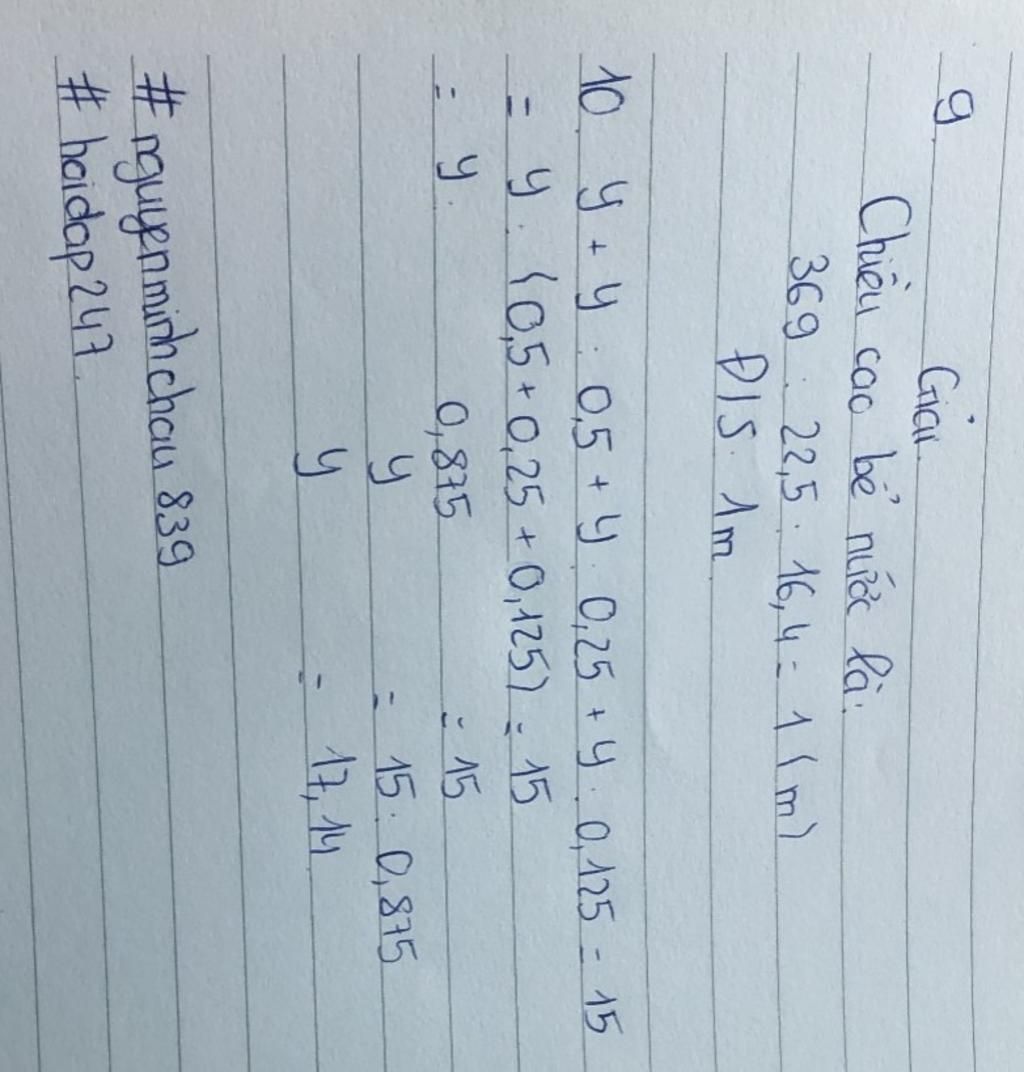 9
Giải
Chiều cao bể nước là:
369 : 22,5 : 16,4 = 1 (m)
Đ/S: 1m
10 y + y : 0,5 + y : 0,25 + y : 0,125 = 15
= y : (0,5 + 0,25 + 0,125) = 15
= y : 0,875 = 15
y = 15 : 0,875
y = 17,14
# nguyenminhchau839
# hoidap247